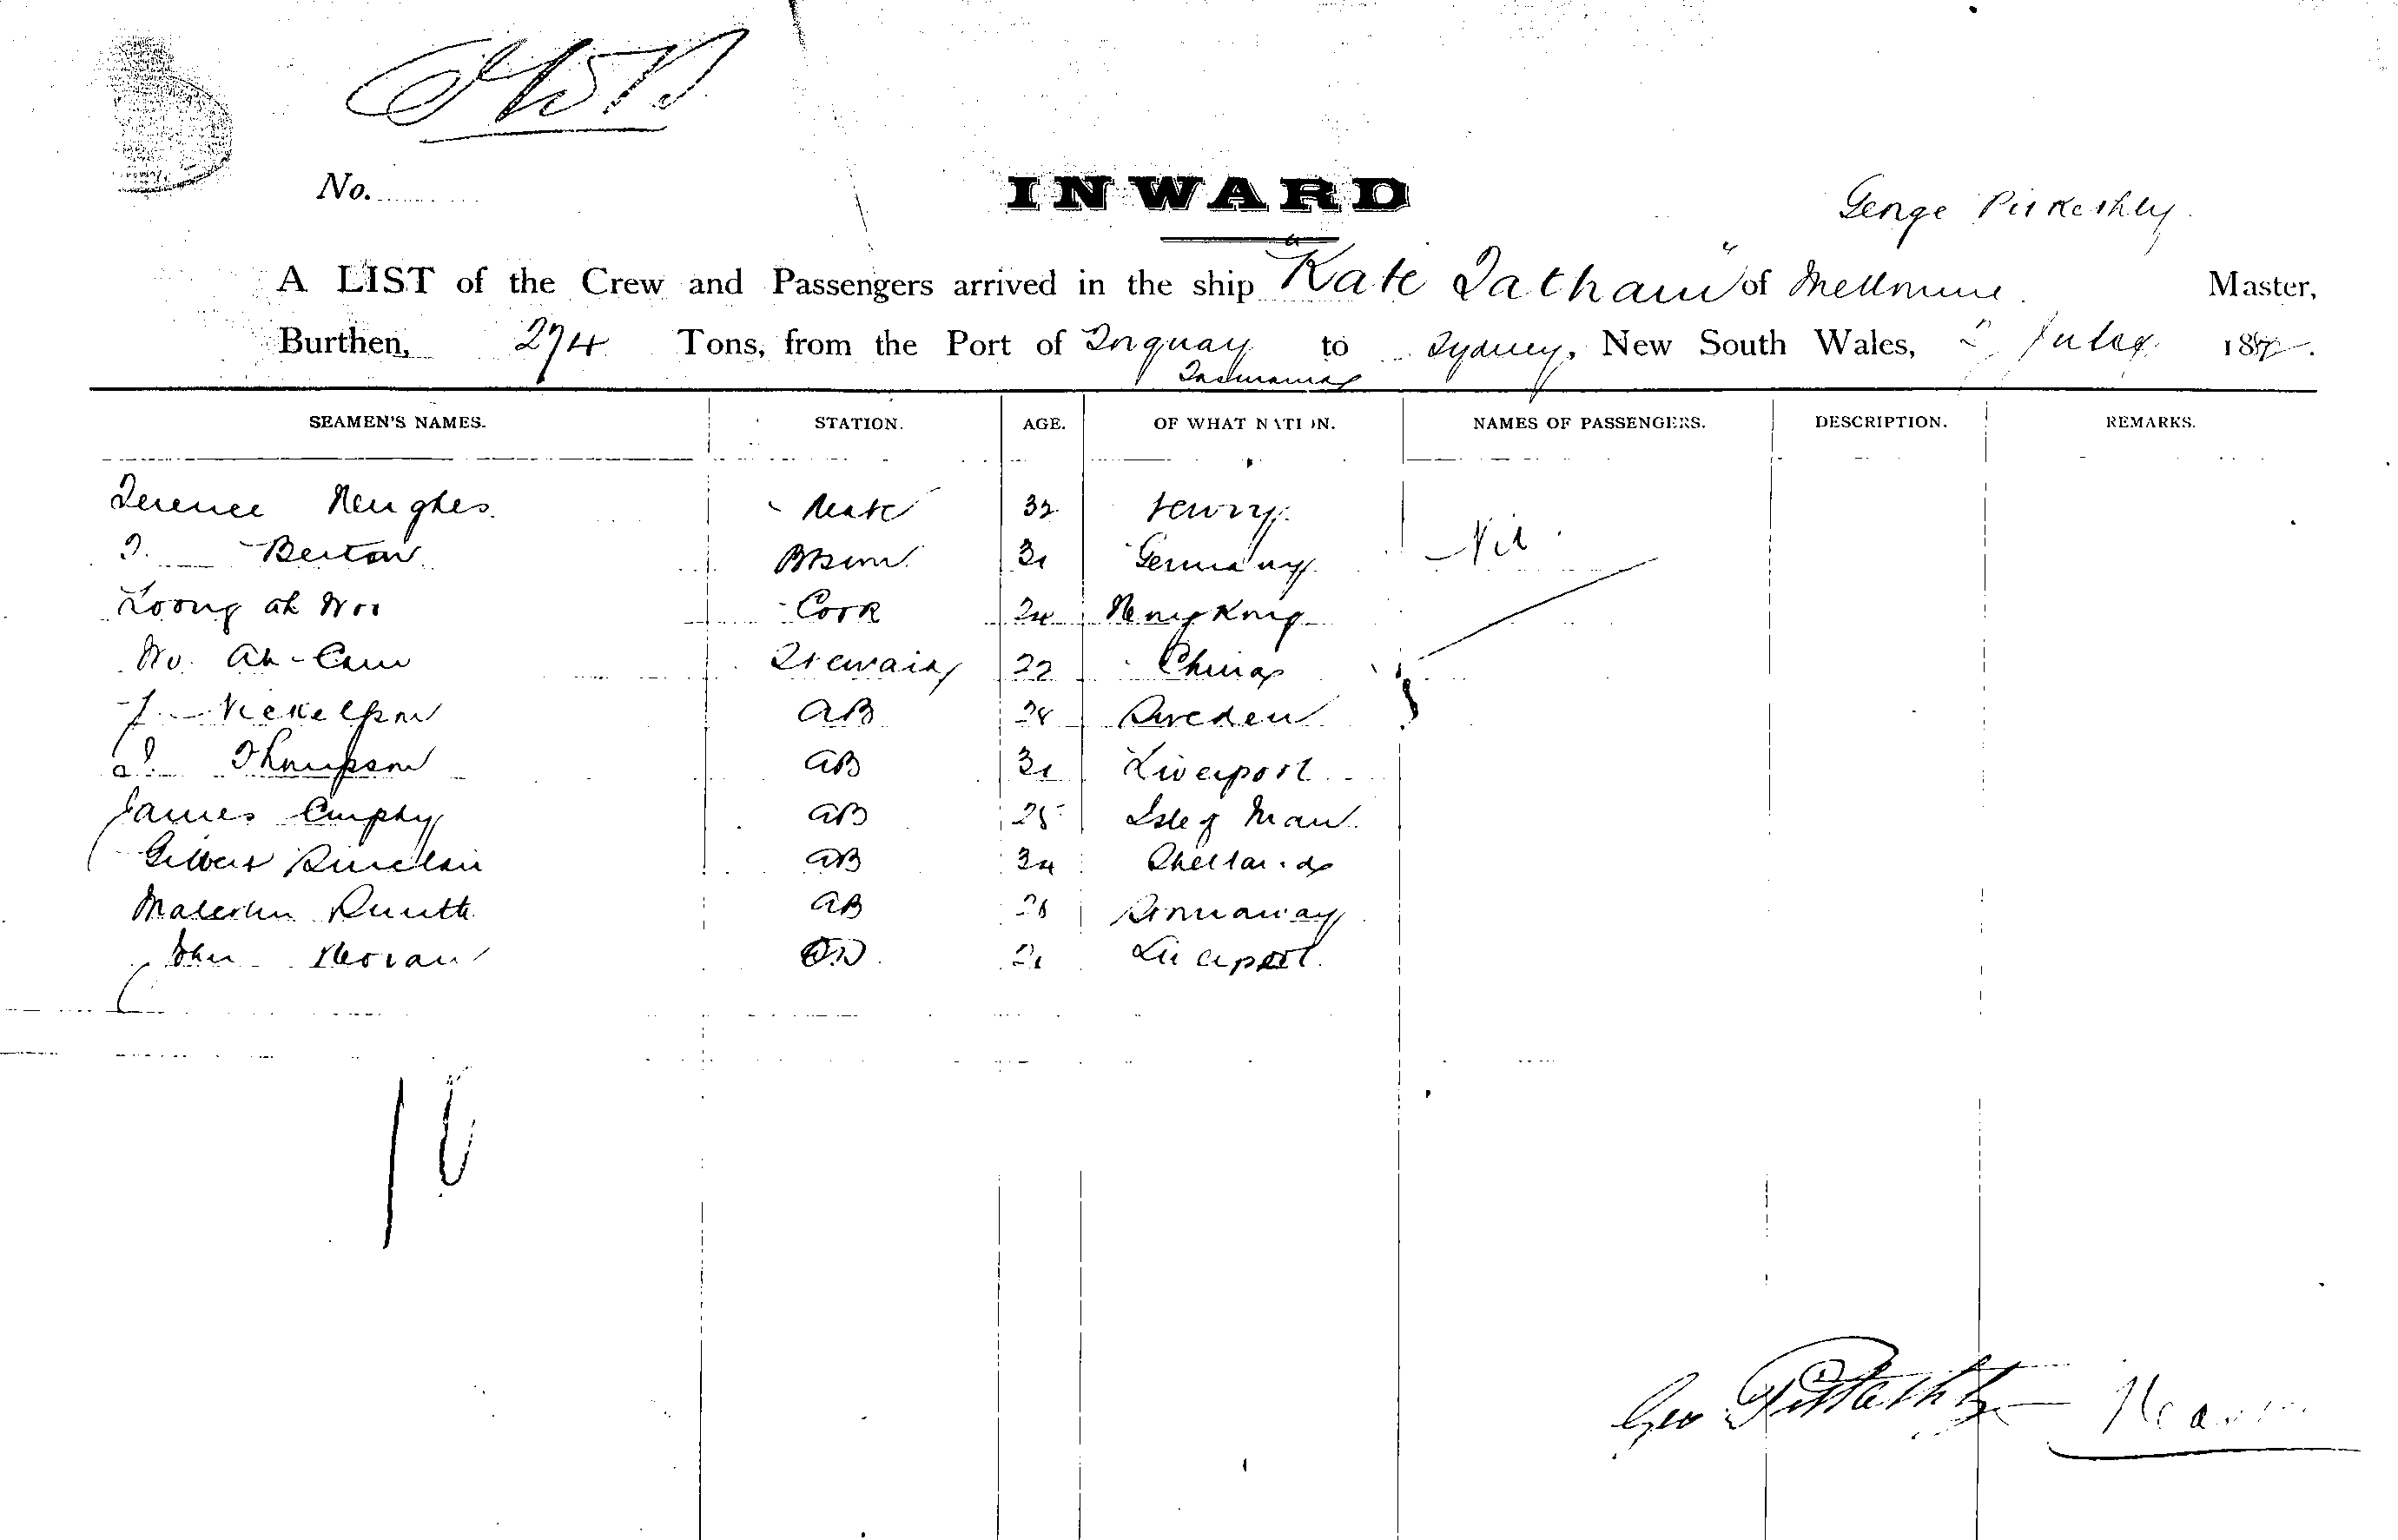 No.
INWARD
George
A LIST of the Crew and Passengers arrived in the ship "Kate Tatham" of Melbourne Master,
Burthen, 274 Tons, from the Port of Torquay to Sydney, New South Wales, July 18
Tasmania
SEAMEN'S NAMES. STATION. AGE. OF WHAT NATION. NAMES OF PASSENGERS. DESCRIPTION. REMARKS.
Terence Hughes Mate 32 Newry Nil
T. Berton Bosun 31 Germany
Loong ah Cook 24 Hong Kong
Ah Steward 22 China
J. AB 28 Sweden
Thompson AB 31 Liverpool
James AB 25 Isle of Man
Gilbert Sinclair AB 34 Shetland
Malcolm Smith AB 26 Stornaway
John Moran 21 Liverpool
10
Geo